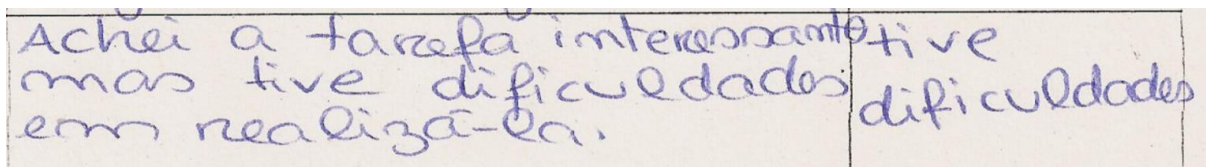 Achei a tarefa interessante
mas tive dificuldades
em realizá-la.
tive
dificuldades